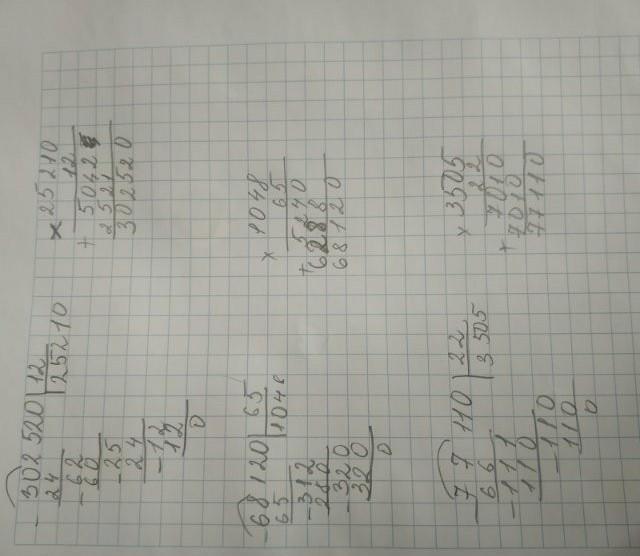 - 302 520 | 12
24 | 25210
- 62
60
- 25
24
- 12
12
0
× 25210
12
+ 5042
2521
302520
- 68 120 | 65
65 | 1048
- 312
260
- 320
320
0
× 1048
65
+ 5240
6288
68120
- 77 110 | 22
66 | 3505
- 111
110
- 110
110
0
× 3505
22
+ 7010
7010
77110